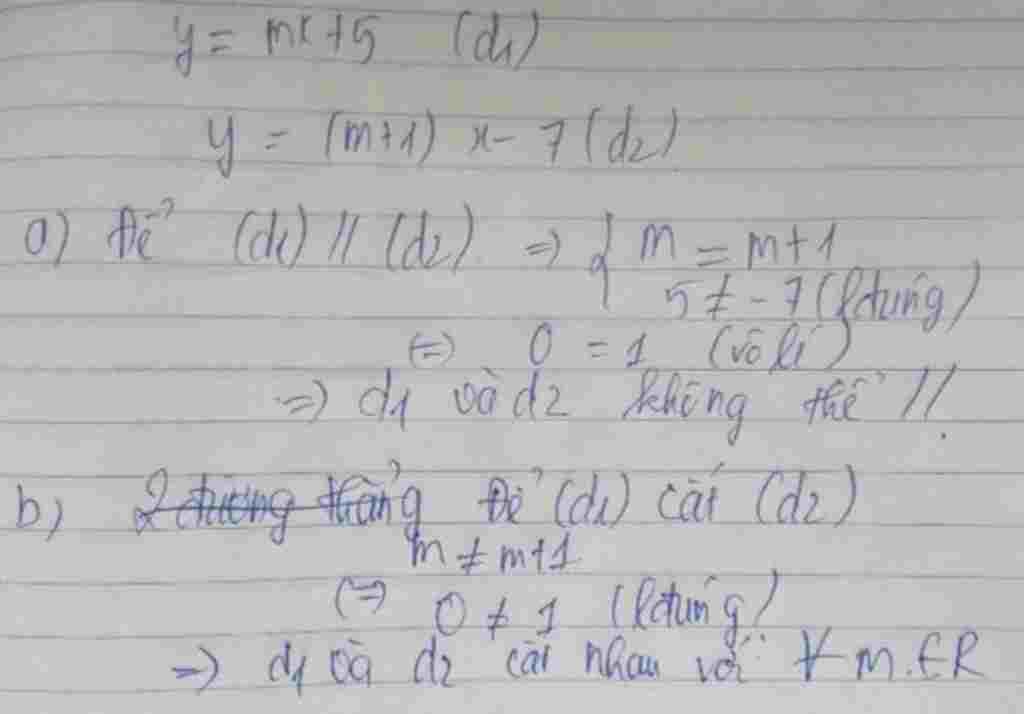 y = mx + 5 (d1)
y = (m+1) x - 7 (d2)
a) Để (d1) // (d2) => { m = m+1
5 ≠ -7 (lđúng)
<=> 0 = 1 (vô lí)
=> d1 và d2 không thể //.
b) 2 đường thẳng Để (d1) cắt (d2)
m ≠ m+1
<=> 0 ≠ 1 (lđúng)
=> d1 và d2 cắt nhau với ∀ m ∈ R